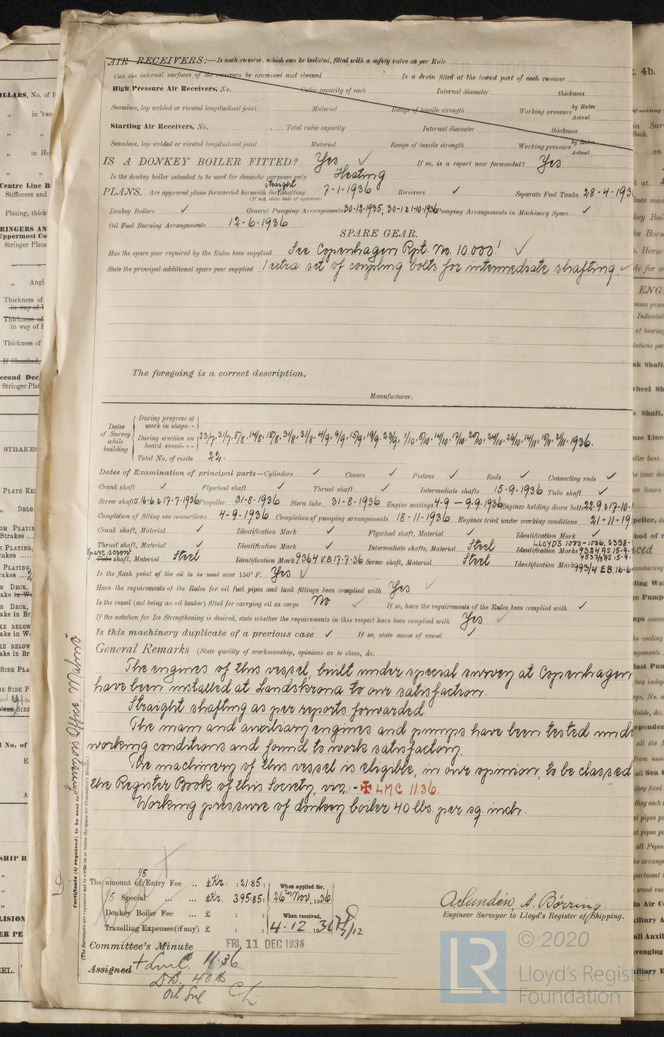 AIR RECEIVERS:—Is each receiver, which can be isolated, fitted with a safety valve as per Rule
Can the internal surfaces of the receivers be examined and cleaned Is a drain fitted at the lowest part of each receiver
High Pressure Air Receivers, No. Cubic capacity of each Internal diameter thickness
Seamless, lap welded or riveted longitudinal joint: Material Range of tensile strength Working pressure by Rules Actual
Starting Air Receivers, No. Total cubic capacity Internal diameter thickness
Seamless, lap welded or riveted longitudinal joint: Material Range of tensile strength Working pressure by Rules Actual
IS A DONKEY BOILER FITTED? Yes ✓ If so, is a report now forwarded? Yes
Is the donkey boiler intended to be used for domestic purposes only Heating
PLANS. Are approved plans forwarded herewith for Straight Shafting 7-1-1936 Receivers ✓ Separate Fuel Tanks 28-4-193
(If not, state date of approval)
Donkey Boilers ✓ General Pumping Arrangements 30-12-1935, Pumping Arrangements in Machinery Space ✓
Oil Fuel Burning Arrangements 12-6-1936
SPARE GEAR.
Has the spare gear required by the Rules been supplied See Copenhagen Rpt. No. 10.000! ✓
State the principal additional spare gear supplied 1 extra set of coupling bolts for intermediate shafting. ✓
The foregoing is a correct description,
Manufacturer.
Dates of Survey while building
During progress of work in shops--
During erection on board vessel--- 1936.
Total No. of visits 22.
Dates of Examination of principal parts—Cylinders ✓ Covers ✓ Pistons ✓ Rods ✓ Connecting rods ✓
Crank shaft ✓ Flywheel shaft ✓ Thrust shaft ✓ Intermediate shafts 15-9-1936 Tube shaft ✓
Screw shaft 17-7-1936 Propeller 31-8-1936 Stern tube 31-8-1936 Engine seatings 4-9 - 9-9-1936 Engines holding down bolts
Completion of fitting sea connections 4-9-1936 Completion of pumping arrangements 18-11-1936 Engines tried under working conditions 21-11-19
Crank shaft, Material ✓ Identification Mark ✓ Flywheel shaft, Material ✓ Identification Mark ✓
Thrust shaft, Material ✓ Identification Mark ✓ Intermediate shafts, Material Steel Identification Marks
Spare screw Tube shaft, Material Steel Identification Mark 9364 V.B. 17-7-36 Screw shaft, Material Steel Identification Mark
Is the flash point of the oil to be used over 150° F. Yes ✓
Have the requirements of the Rules for oil fuel pipes and tank fittings been complied with Yes ✓
Is the vessel (not being an oil tanker) fitted for carrying oil as cargo No ✓ If so, have the requirements of the Rules been complied with ✓
If the notation for Ice Strengthening is desired, state whether the requirements in this respect have been complied with Yes ✓
Is this machinery duplicate of a previous case ✓ If so, state name of vessel ✓
General Remarks (State quality of workmanship, opinions as to class, &c.
The engines of this vessel, built under special survey at Copenhagen
have been installed at Landskrona to our satisfaction.
Straight shafting as per reports forwarded
The main and auxiliary engines and pumps have been tested und
working conditions and found to work satisfactory.
The machinery of this vessel is eligible, in our opinion, to be classed
the Register Book of this Society, viz. - ✠ LMC 11.36.
Working pressure of donkey boiler 40 lbs. per sq. inch.
Certificate (if required) to be sent to
The amount of Entry Fee .. £Kr. : 21.85 : When applied for,
4/5 Special ... ... £Kr. 395.85 : 26th Nov. 1936
Donkey Boiler Fee ... £ : : When received,
Travelling Expenses (if any) £ : : 4.12.36
A. Lundén A. Börring
Engineer Surveyor to Lloyd's Register of Shipping.
Committee's Minute FRI. 11 DEC 1936
Assigned + LMC 11.36
D.B. 40 lb
Oil Fuel CL
LR
© 2020
Lloyd's Register
Foundation